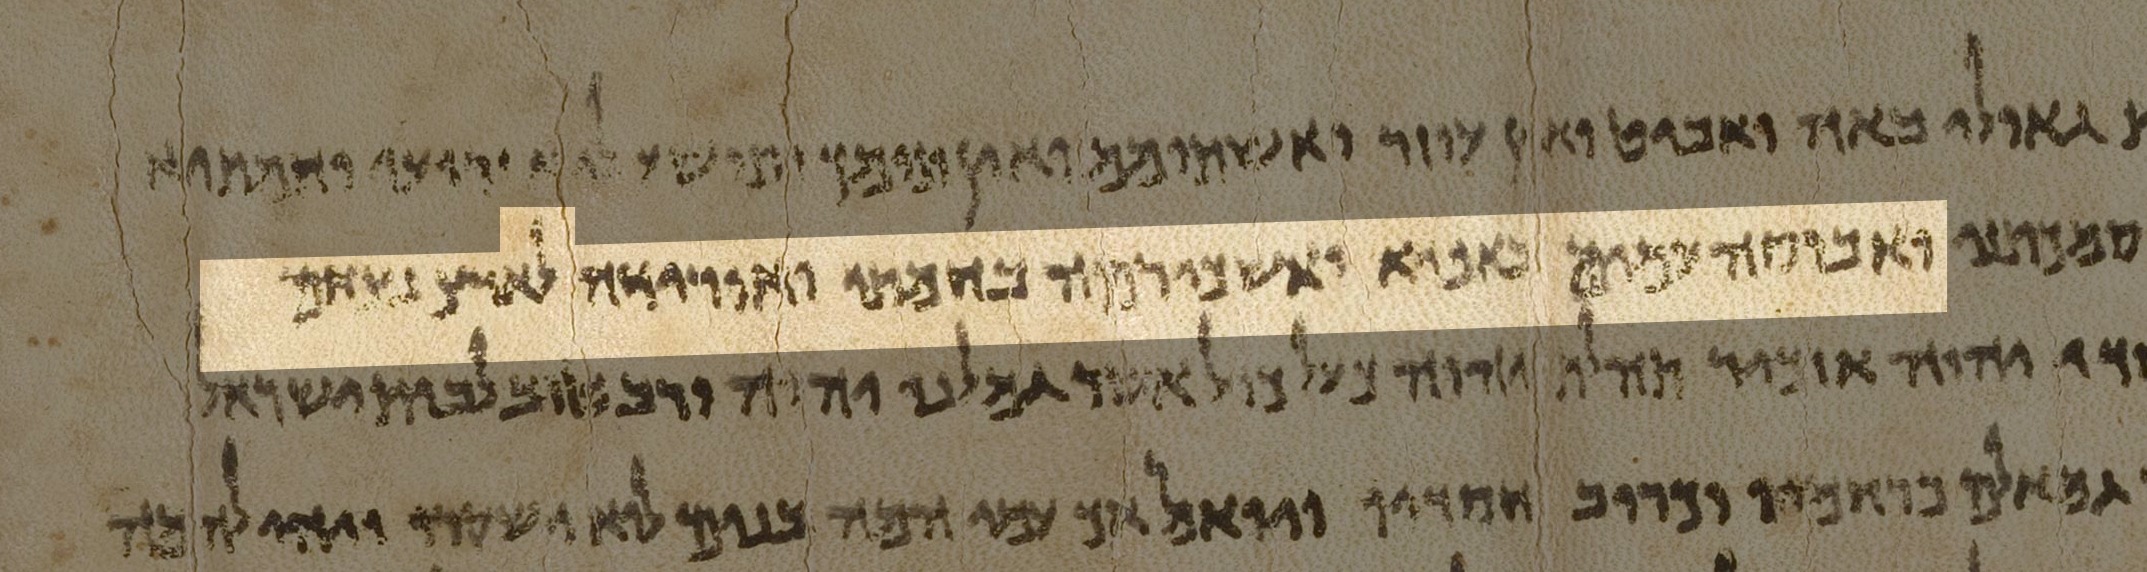 גאולי באה ואביט ואין עוזר ואשתוממה ואין תומך ותושע ליא זרועי וחמתי היא
סמכתני ואבוסה עמים באפיא ואשכירמה בחמתי ואורידה לארץ נצחם
יהוה אזכיר יהוה כעל כול אשר גמלנו יהוה ורב טוב לבית ישראל
גמלם ברחמיו וכרוב חסדיו ויואמר אך עמי המה בנים לוא ישקורו ויהיה להמה